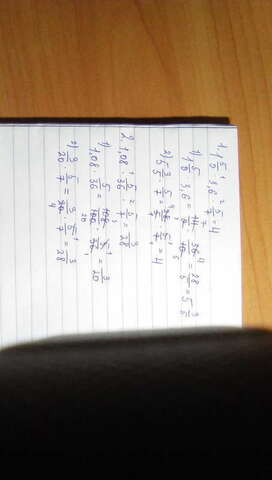 1. 1 5/9 · 3,6 · 5/7 = 4
1) 1 5/9 · 3,6 = 14/9 · 36/10 = 28/5 = 5 3/5
2) 5 3/5 · 5/7 = 28/5 · 5/7 = 4
2. 1,08 · 5/36 · 5/7 = 3/28
1) 1,08 · 5/36 = 108/100 · 5/36 = 3/20
2) 3/20 · 5/7 = 3/20 · 5/7 = 3/28